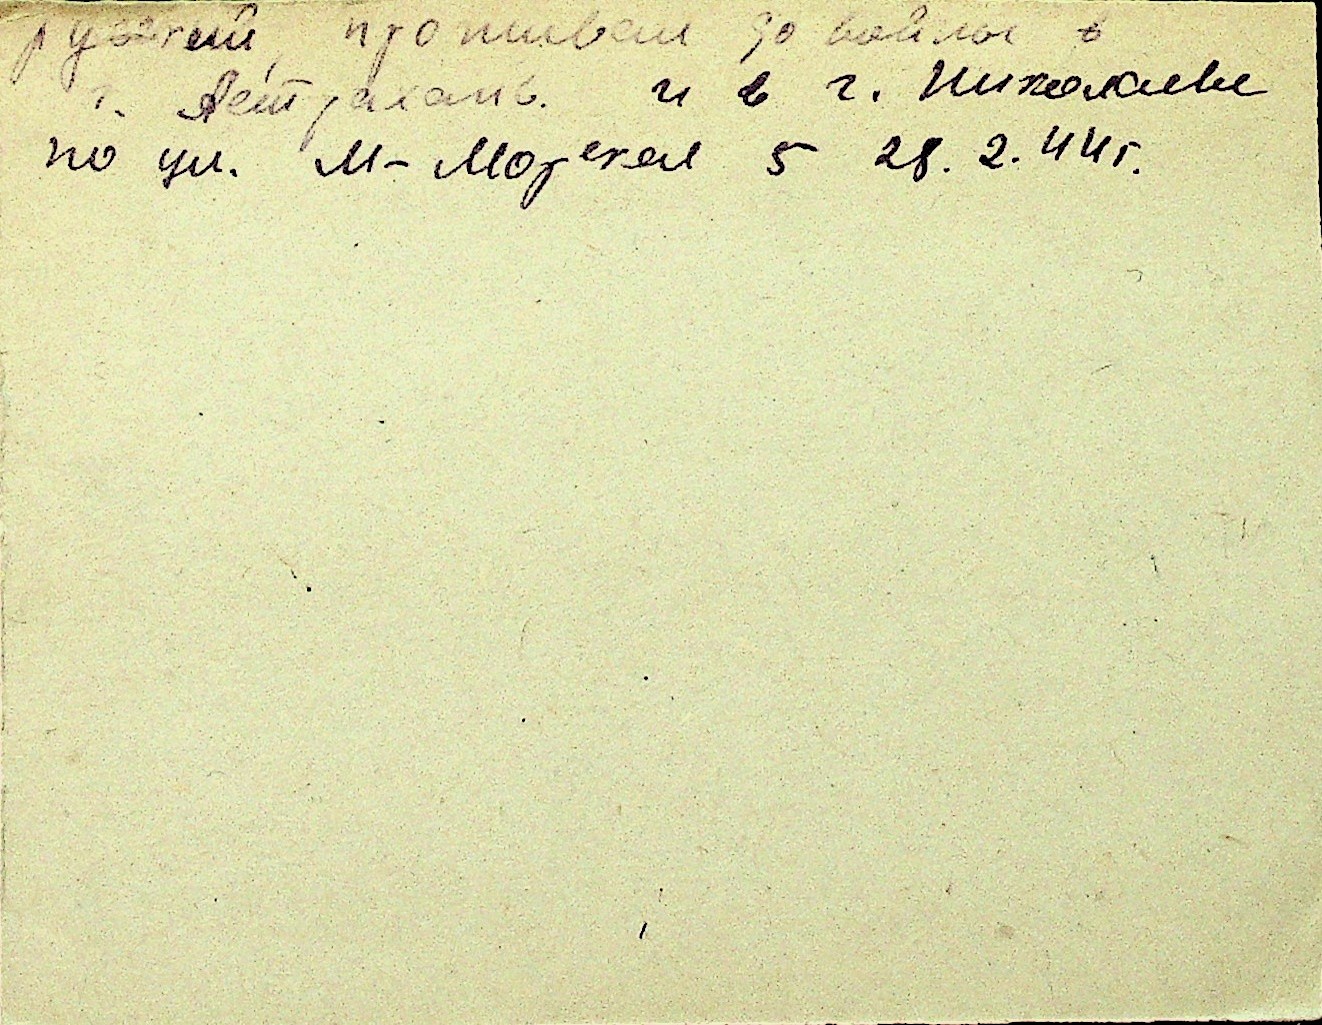 русский, проживал до войны в
г. Астрахань. и в г. Николаеве
по ул. М-Морская 5 28. 2. 44 г.